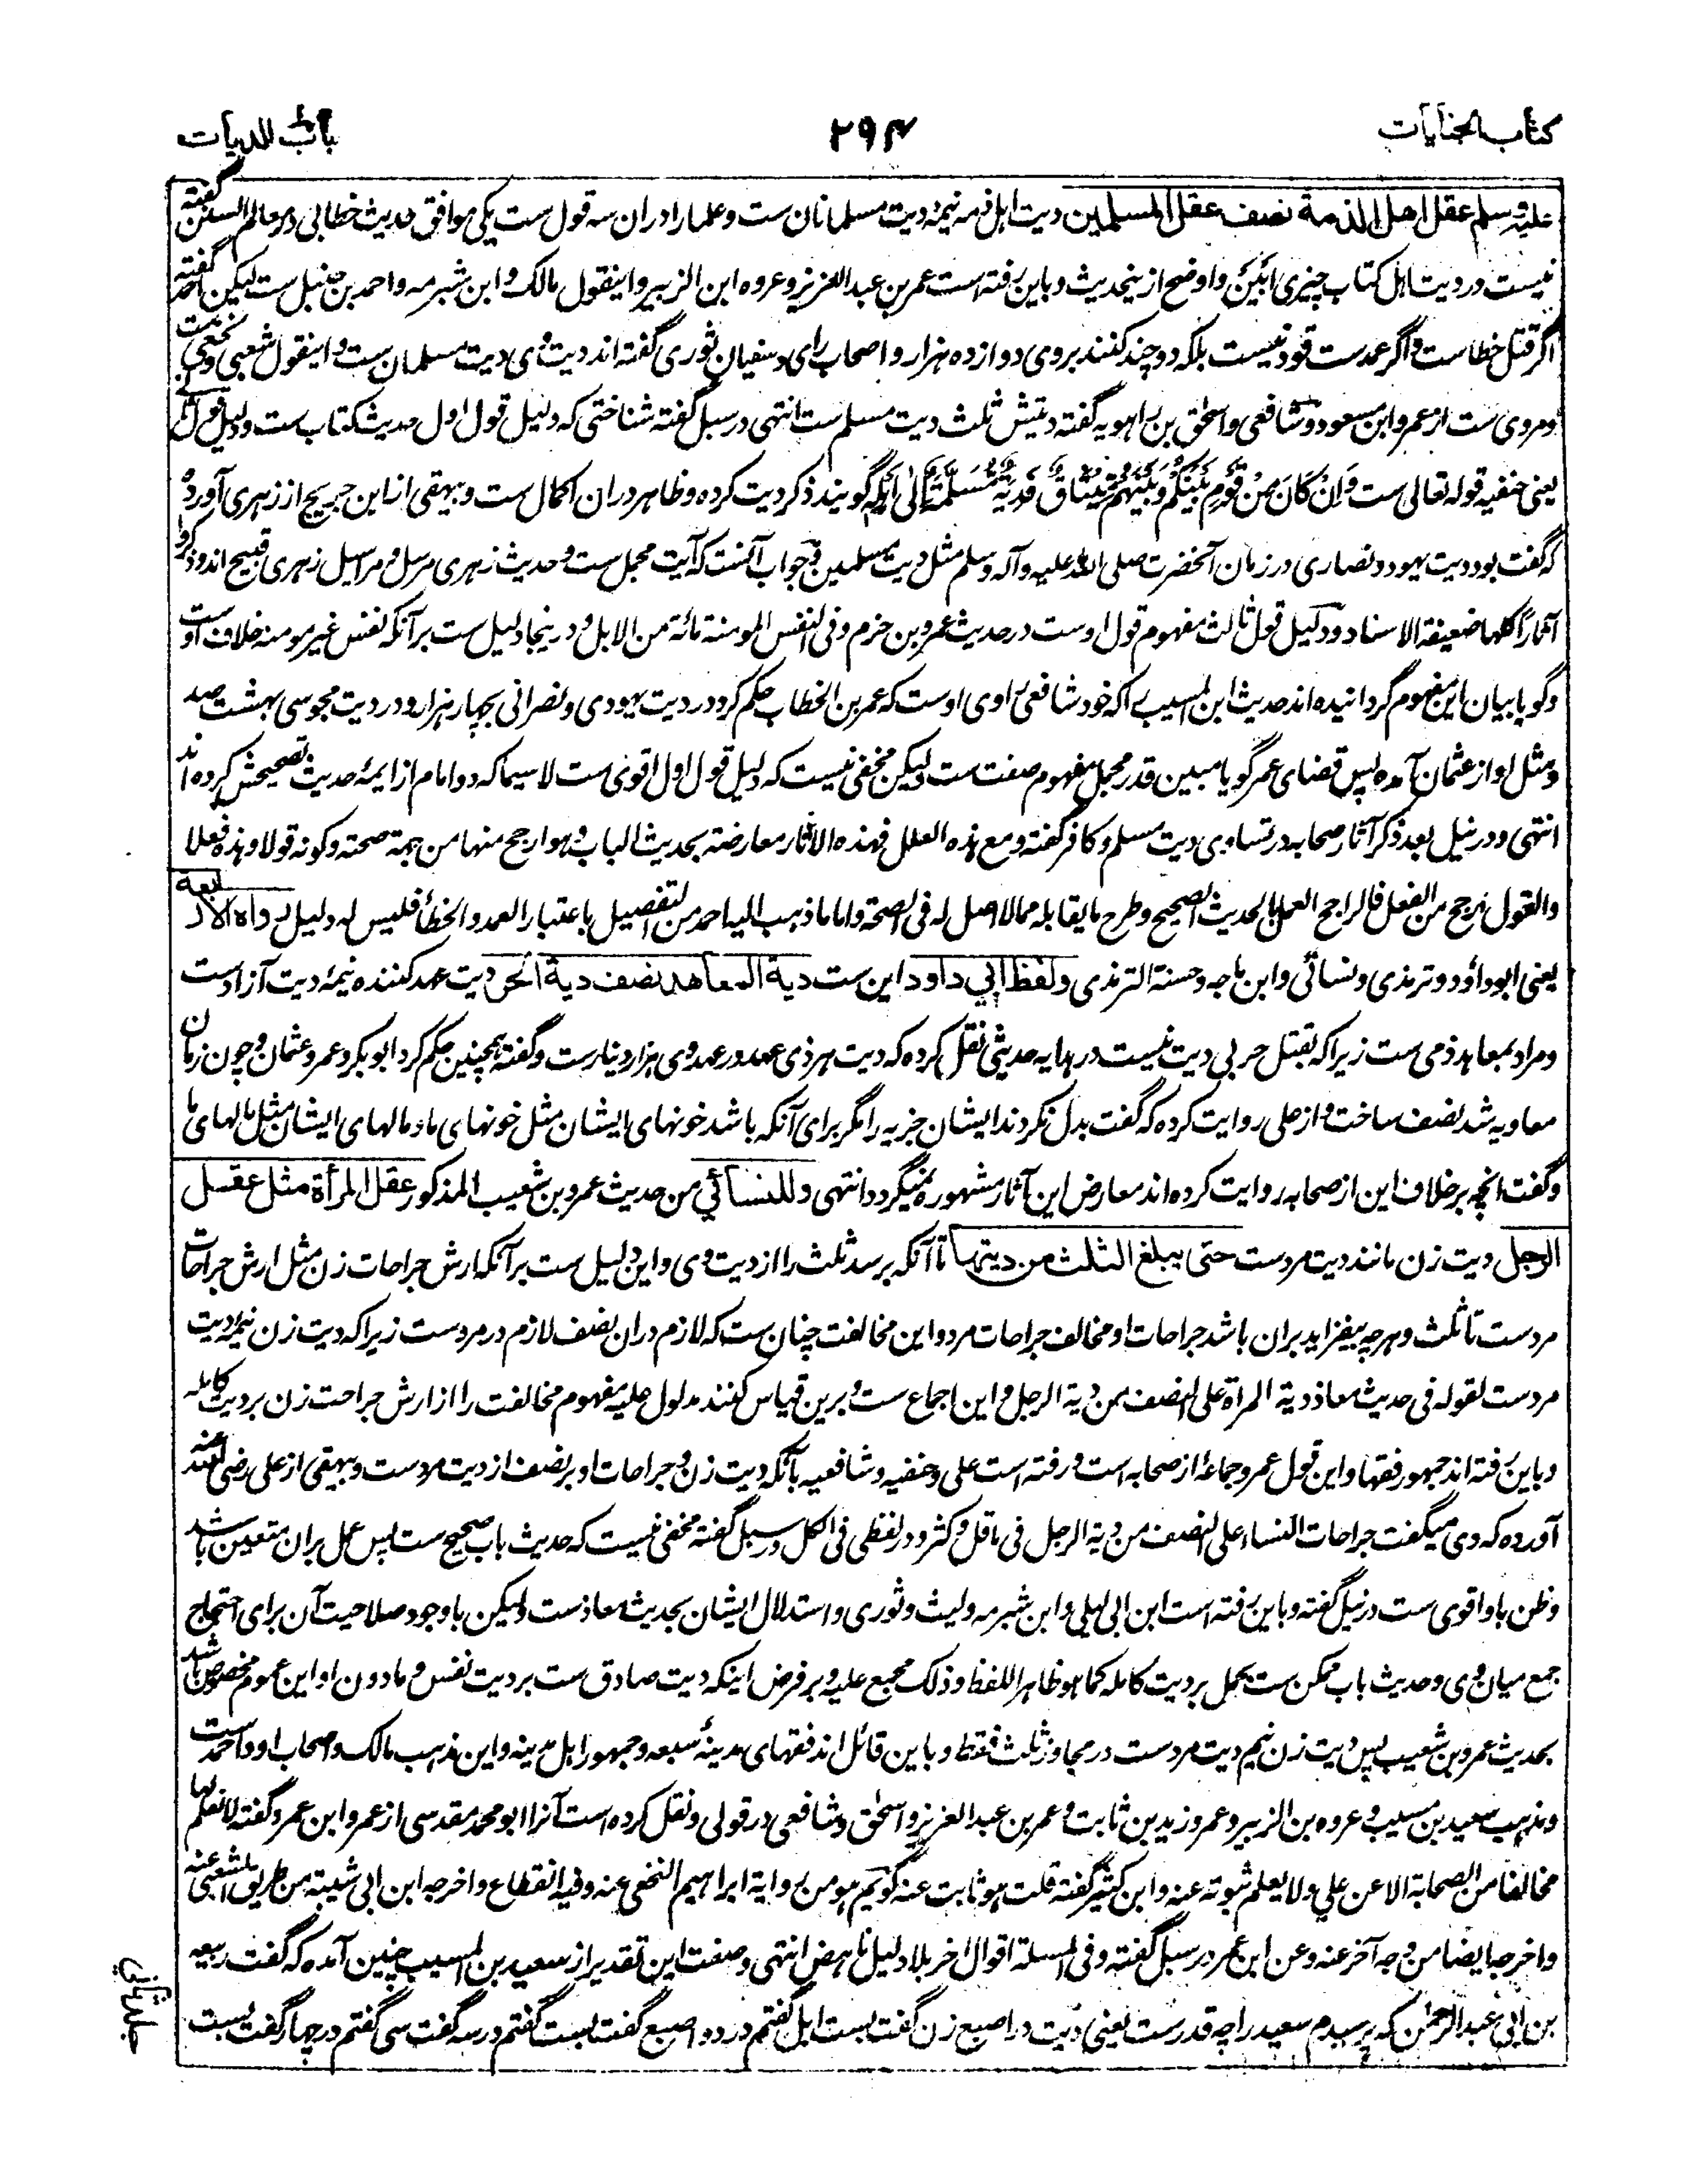 کتاب الجنایات
۲۹۴
باب الدیات
علیه وسلم عقل اهل الذمة نصف عقل المسلمین دیت اہل ذمہ نیمۂ دیت مسلمانان ست و علما را دران سہ قول ست یکی موافق حدیث خطابی در معالم السنن گفته
نیست در دیت اہل کتاب چیزی ابین و اوضح ازینحدیث و باین رفته است عمر بن عبد العزیز و عروه ابن الزبیر و اینقول مالک و ابن شبرمہ و احمد بن حنبل ست لیکن احمد گفته
اگر قتل خطاست و اگر عمدست قود نیست بلکہ دو چند کنند بروی دوازده ہزار و اصحاب رای و سفیان ثوری گفته اند دیت وی دیت مسلمان ست و اینقول شعبی و نخعی ست
و مروی ست از عمر و ابن مسعود و شافعی و اسحٰق بن راہویہ گفته دیتش ثلث دیت مسلم ست انتہی در سبل گفته شناختی کہ دلیل قول اول حدیث کتاب ست و دلیل قول ثانی
یعنی حنفیہ قولہ تعالی ست وَاِنْ كَانَ مِنْ قَوْمٍ بَيْنَكُمْ وَبَيْنَهُمْ مِيْثَاقٌ فَدِيَةٌ مُّسَلَّمَةٌ اِلٰى اَهْلِهٖ گویند ذکر دیت کرده و ظاہر دران اکمال ست و بیہقی از ابن جریج از زہری آورده
کہ گفت بود دیت یہود و نصاری در زمان آنحضرت صلی اللہ علیہ وآلہ وسلم مثل دیت مسلمین و جواب آنست کہ آیت مجمل ست و حدیث زہری مرسل و مراسیل زہری قبیح اند و ذکروا
آثارا کلها ضعیفة الاسناد و دلیل قول ثالث مفہوم قول اوست در حدیث عمرو بن حزم و فی النفس المومنة مائة من الابل و درینجا دلیل ست برآنکہ نفس غیر مومنہ خلاف اوست
و گویا بیان این مفہوم گردانیده اند حدیث ابن المسیب را کہ خود شافعی راوی اوست کہ عمر بن الخطاب حکم کرد در دیت یہودی و نصرانی بچہار ہزار و در دیت مجوسی بہشت صد
و مثل او از عثمان آمده پس قضای عمر گویا مبین قدر مجمل مفہوم صفت ست و لیکن مخفی نیست کہ دلیل قول اول اقوی ست لا سیما کہ دو امام از ایمۂ حدیث تصحیحش کرده اند
انتہی و در نیل بعد ذکر آثار صحابہ در تساوی دیت مسلم و کافر گفته و مع ہذه العلل فہذه الاثار معارضة بحدیث الباب و ہو ارجح منہا من جہة صحتہ و کونہ قولا و ہذه فعلا
والقول ارجح من الفعل فالراجح العمل بالحدیث الصحیح و طرح ما یقابلہ مما لا اصل لہ فی الصحة و اما ما ذہب الیہ احمد من التفصیل باعتبار العمد و الخطأ فلیس لہ دلیل رواه الاربعة
یعنی ابوداؤد و ترمذی و نسائی و ابن ماجہ و حسنہ الترمذی ولفظ ابی داود این ست دیة المعاهد نصف دیة الحر دیت عہد کننده نیمۂ دیت آزادست
و مراد بمعاہد ذمی ست زیرا کہ بقتل حربی دیت نیست در ہدایہ حدیثی نقل کرده کہ دیت ہر ذی عہد در عہد وی ہزار دینارست و گفته ہمچنین حکم کرد ابوبکر و عمر و عثمان و چون زمان
معاویہ شد نصف ساخت و از علی روایت کرده کہ گفت بدل نکردند ایشان جزیہ را مگر برای آنکہ باشد خونہای ایشان مثل خونہای ما و مالہای ایشان مثل مالہای ما
و گفت انچہ برخلاف این از صحابہ روایت کرده اند معارض این آثار مشہوره نمیگردد انتہی وللنسائی من حدیث عمرو بن شعیب المذکور عقل المرأة مثل عقل
الرجل دیت زن مانند دیت مردست حتی یبلغ الثلث من دیتها تا آنکہ برسد ثلث را از دیت وی و این دلیل ست برآنکہ ارش جراحات زن مثل ارش جراحات
مردست تا ثلث و ہرچہ بیفزاید بران باشد جراحات او مخالف جراحات مرد و این مخالفت چنان ست کہ لازم دران نصف لازم در مردست زیرا کہ دیت زن نیمۂ دیت
مردست لقولہ فی حدیث معاذ دیة المرأة علی النصف من دیة الرجل و این اجماع ست و برین قیاس کنند مدلول علیہ مفہوم مخالفت را از ارش جراحت زن بر دیت کاملہ
و باین رفته اند جمہور فقہا و این قول عمر و جماعۂ از صحابہ است و رفته است علی و حنفیہ و شافعیہ بآنکہ دیت زن و جراحات او بر نصف از دیت مردست و بیہقی از علی رضی اللہ عنہ
آورده کہ وی میگفت جراحات النساء علی النصف من دیة الرجل فی ما قل و کثر و در لفظی فی الکل و در سبل گفته مخفی نیست کہ حدیث باب صحیح ست پس عمل بران متعین باشد
و ظن باو اقوی ست در نیل گفته و باین رفته است ابن ابی لیلی و ابن شبرمہ و لیث و ثوری و استدلال ایشان بحدیث معاذست و لیکن باوجود صلاحیت آن برای احتجاج
جمع میان وی و حدیث باب ممکن ست بحمل بر دیت کاملہ کما ہو ظاہر اللفظ و ذلک مجمع علیہ و بر فرض اینکہ دیت صادق ست بر دیت نفس و ما دون او این عموم مخصوص باشد
بحدیث عمرو بن شعیب پس دیت زن نیم دیت مردست در مجاوز ثلث فقط و باین قائل اند فقہای مدینۂ سبعہ و جمہور اہل مدینہ و این مذہب مالک و اصحاب او و احمد ست
و مذہب سعید بن مسیب و عروه بن الزبیر و عمر و زید بن ثابت و عمر بن عبد العزیز و اسحٰق و شافعی در قولی و نقل کرده است آنرا ابو محمد مقدسی از عمر و ابن عمر و گفته لا نعلم لہا
مخالفا من الصحابة الا عن علی ولا یعلم ثبوتہ عنہ و ابن کثیر گفته قلت ہو ثابت عنہ گویم ہو من روایة ابراہیم النخعی عنہ و فیہ انقطاع و اخرجہ ابن ابی شیبة من طریق الشعبی عنہ
و اخرجہ ایضا من وجہ آخر عنہ و عن ابن عمر در سبل گفته و فی المسئلة اقوال اخر بلا دلیل ناہض انتہی و صفت این تقدیر از سعید بن المسیب چنین آمده کہ گفت ربیعہ
بن ابی عبد الرحمٰن کہ پرسیدم سعید را چہ قدرست یعنی دیت در اصبع زن گفت بست ابل گفتم در دو اصبع گفت بست گفتم در سہ گفت سی گفتم در چہار گفت بست
جلد ثانی